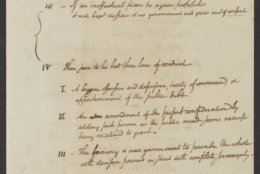 III - If an ineffectual plan be again proposed
it will beget despair & no government will grow out of consent
18 There seem to be but three lines of conduct.
I A league offensive and defensive, treaty of commerce, &
apportionment of the public debt.
II An amendment of the present confederation by
adding such powers as the public mind seems nearest
being matured to grant.
III - The forming a new government to pervade the whole
with decisive powers in short with complete sovereignty.